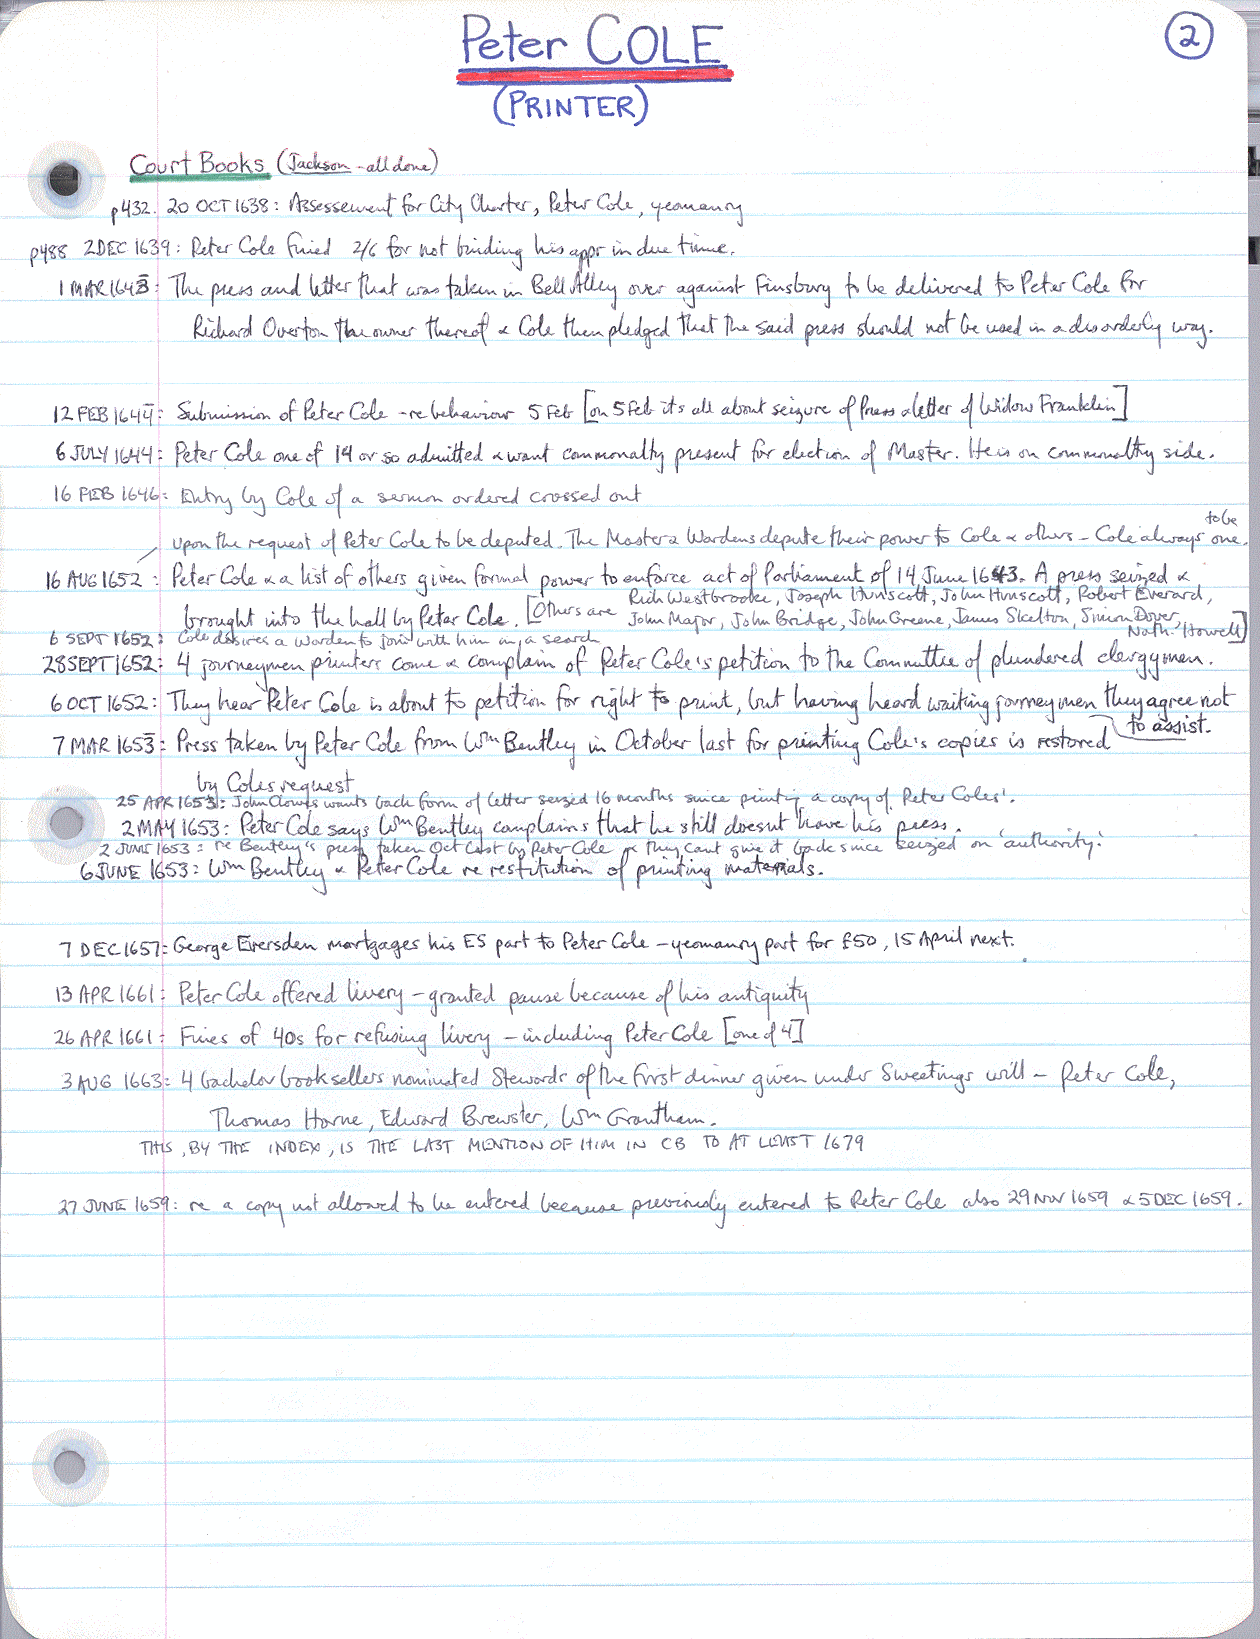 Peter COLE
2
(PRINTER)
Court Books (Jackson - all done)
p432. 20 OCT 1638: Assessement for City Charter, Peter Cole, yeomanry
p488 2 DEC 1639: Peter Cole fined 2/6 for not binding his appr in due time.
1 MAR 1643: The press and letter that was taken in Bell Alley over against Finsbury to be delivered to Peter Cole for
Richard Overton the owner thereof & Cole then pledged that the said press should not be used in a disorderly way.
12 FEB 1644: Submission of Peter Cole - re behaviour 5 Feb [on 5 Feb its all about seizure of Press & letter of Widow Franklin]
6 JULY 1644: Peter Cole one of 14 or so admitted & want commonalty present for election of Master. He is on commonalty side.
16 FEB 1646: Entry by Cole of a sermon ordered crossed out
to be
upon the request of Peter Cole to be deputed. The Master & Wardens depute their power to Cole & others - Cole always one.
16 AUG 1652: Peter Cole & a list of others given formal power to enforce act of Parliament of 14 June 1643. A press seized &
brought into the hall by Peter Cole. [Others are Rich Westbrooke, Joseph Hunscott, John Hunscott, Robert Everard,
John Major, John Bridge, John Greene, James Skelton, Simon Dover,
Nath. Howell]
6 SEPT 1652: Cole desires a Warden to join with him in a search
28 SEPT 1652: 4 journeymen printers come & complain of Peter Cole's petition to the Committee of plundered clergymen.
6 OCT 1652: They hear Peter Cole is about to petition for right to print, but having heard waiting journeymen they agree not
to assist.
7 MAR 1653: Press taken by Peter Cole from Wm Bentley in October last for printing Cole's copies is restored
by Coles request
25 APR 1653: John Clowes wants back form of letter seized 16 months since printing a copy of Peter Coles'.
2 MAY 1653: Peter Cole says Wm Bentley complains that he still doesnt have his press.
2 JUNE 1653: re Bentley's press taken Oct last by Peter Cole & they cant give it back since seized on 'authority'.
6 JUNE 1653: Wm Bentley & Peter Cole re restitution of printing materials.
7 DEC 1657: George Eversden mortgages his ES part to Peter Cole - yeomanry part for £50, 15 April next.
13 APR 1661: Peter Cole offered livery - granted pause because of his antiquity
26 APR 1661: Fines of 40s for refusing livery - including Peter Cole [one of 4]
3 AUG 1663: 4 bachelor booksellers nominated Stewards of the first dinner given under Sweetings will - Peter Cole,
Thomas Horne, Edward Brewster, Wm Grantham.
THIS, BY THE INDEX, IS THE LAST MENTION OF HIM IN CB TO AT LEAST 1679
27 JUNE 1659: re a copy not allowed to be entered because previously entered to Peter Cole also 29 NOV 1659 & 5 DEC 1659.